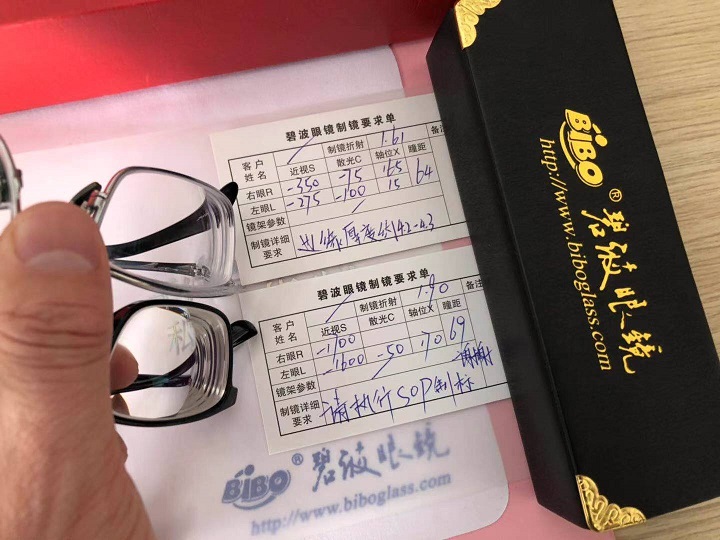 碧波眼镜制镜要求单
制镜折射 1.61 备注
客户姓名 近视S 散光C 轴位X 瞳距
右眼R -350 -75 165 64
左眼L -275 -100 15
镜架参数
制镜详细要求 边缘厚度约4.2-4.3
碧波眼镜制镜要求单
制镜折射 1.90 备注
客户姓名 近视S 散光C 轴位X 瞳距
右眼R -1700 69
左眼L -1600 -50 170
镜架参数 谢谢
制镜详细要求 请执行SOP制标
BiBO® 碧波眼镜
http://www.biboglass.com
BiBO® 碧波眼镜
http://www.biboglass.com